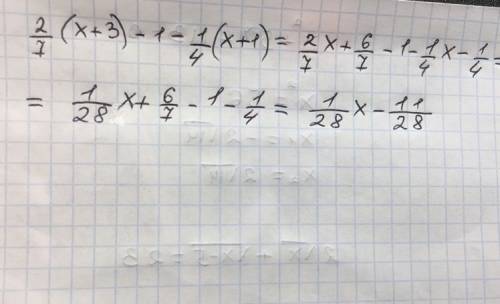 2/7 (x+3) - 1 - 1/4 (x+1) = 2/7 x + 6/7 - 1 - 1/4 x - 1/4 =
= 1/28 x + 6/7 - 1 - 1/4 = 1/28 x - 11/28